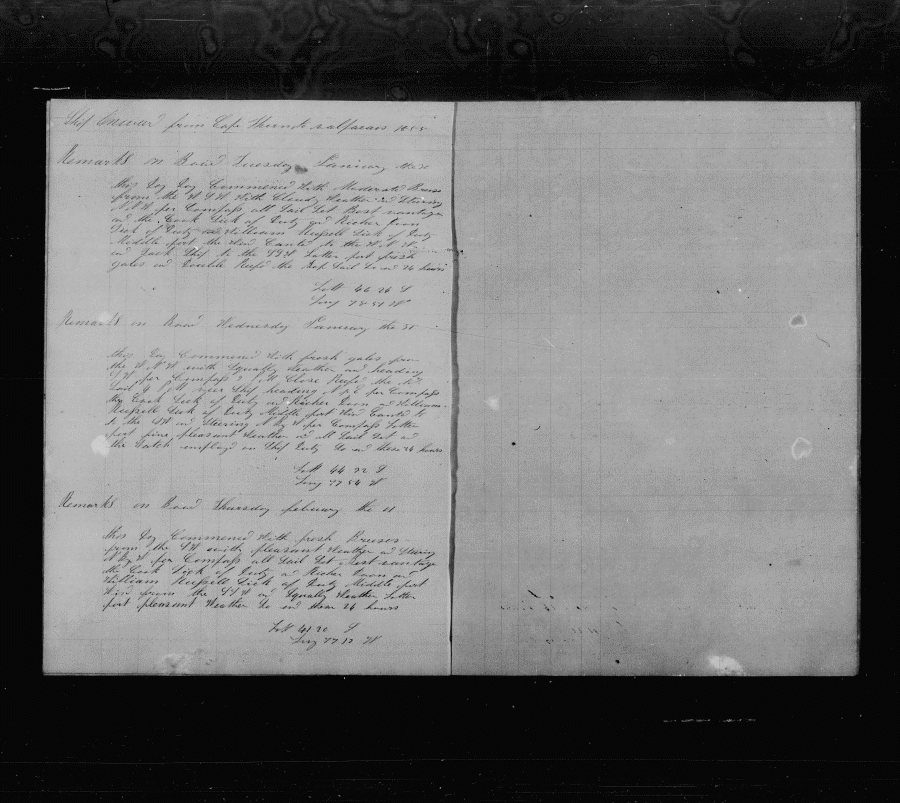 Ship from Cape towards valparaso 1855
Remarks on Board Tuesday January the 30
this Day Commenced With Moderate Breese
from the W S W With Cloudy Weather and Steering
per Compass all Sail Set Best vantage
and the Cook Sick of Duty and Richer Doon
Sick of Duty and William Russell Sick of Duty
Middle part the Wind Canted to the W N W
and Ship to the SSW Latter part fresh
gales and Double Reefd the Top Sail So end 24 hours
Latt 46 26 S
Long 78 51 W
Remarks on Board Wednesday January the 31
this Day Commenced With fresh gales from
the W N W with Squally Weather and heading
S W per Compass M Close Reefd the
Sail M Ship heading per Compass
the Cook Sick of Duty and Richer Doon and William
Russell Sick of Duty Middle part Wind Canted
to the SW and Steering N by W per Compass Latter
part fine pleasant Weather and all Sail Set and
the Watch employd on Ship Duty So end these 24 hours
Latt 44 22 S
Long 77 54 W
Remarks on Board Thursday february the 1
this Day Commenced With fresh Breeses
from the SW with pleasant Weather and Steering
N by W per Compass all Sail Set Best vantage
the Cook Sick of Duty and Richer Doon and
William Russell Sick of Duty Middle part
Wind from the SSW and Squally Weather Latter
part pleasant Weather So end these 24 hours
Latt 41 20 S
Long 77 12 W